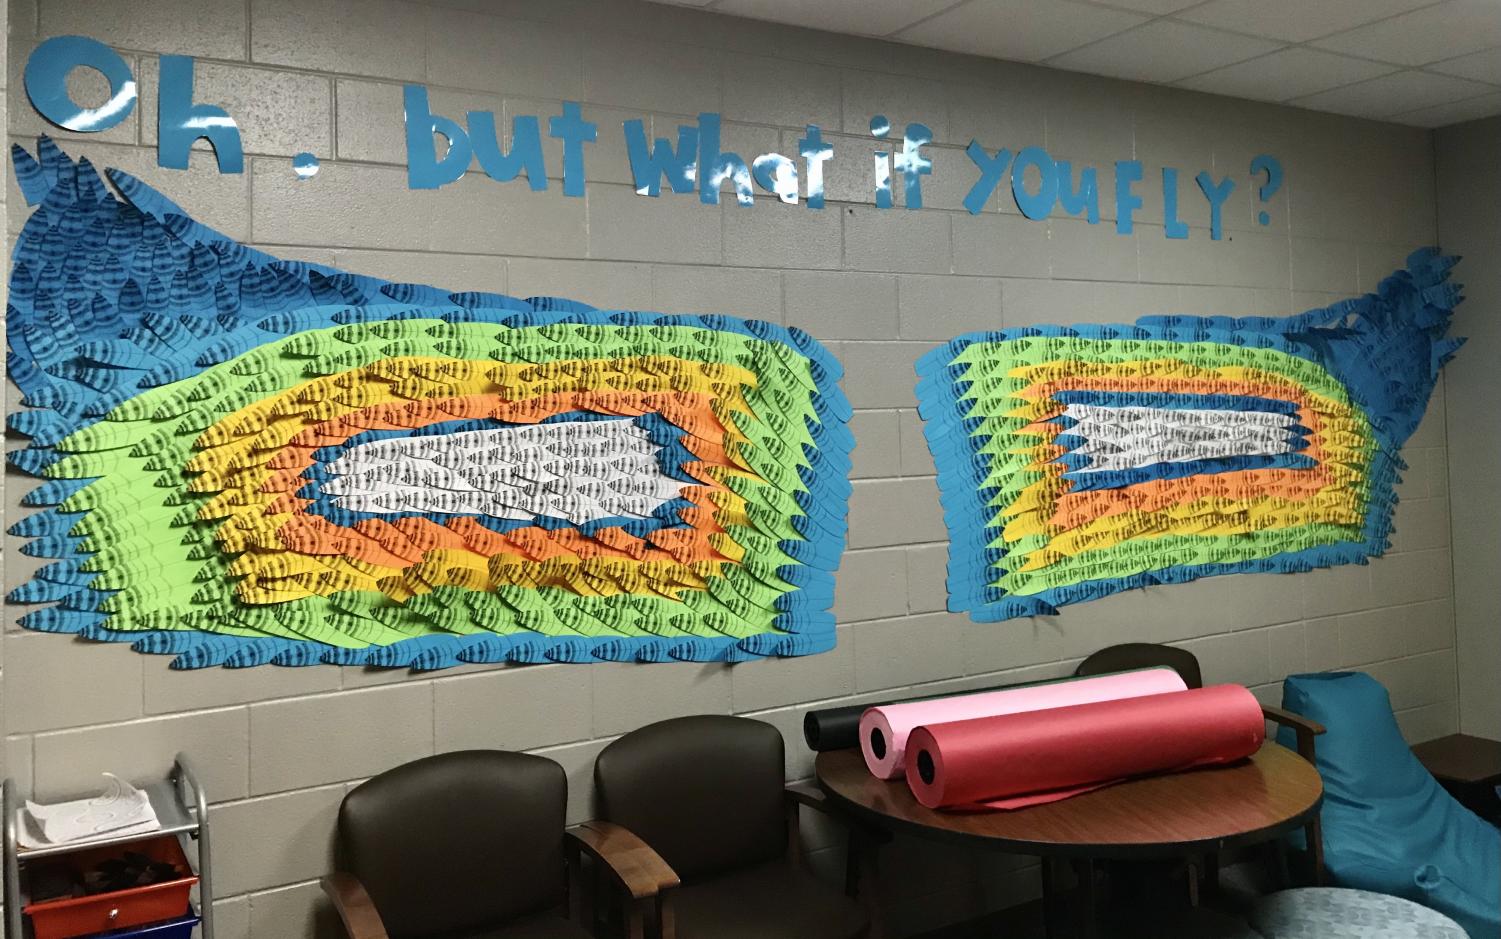 Oh. but what if you FLY?